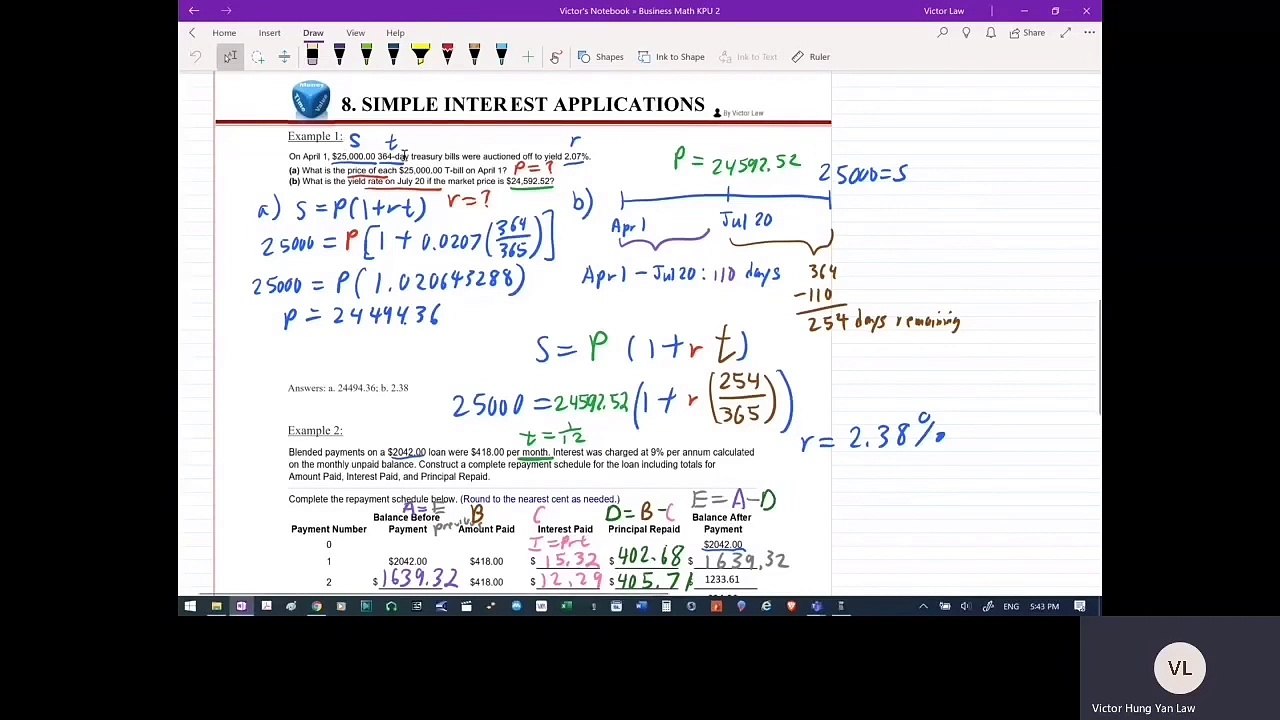 Victor's Notebook » Business Math KPU 2
Victor Law
Home Insert Draw View Help
Share
Shapes
Ink to Shape
Ink to Text
Ruler
Money
Time
Value
8. SIMPLE INTEREST APPLICATIONS
By Victor Law
Example 1:
S t r
On April 1, $25,000.00 364-day treasury bills were auctioned off to yield 2.07%.
(a) What is the price of each $25,000.00 T-bill on April 1? P = ?
(b) What is the yield rate on July 20 if the market price is $24,592.52?
r = ?
a) S = P(1+rt)
25000 = P[1 + 0.0207(364/365)]
25000 = P(1.020643288)
P = 24494.36
b)
P = 24592.52
25000 = S
Apr 1
Jul 20
Apr 1 – Jul 20: 110 days
364
-110
254 days remaining
S = P (1+rt)
25000 = 24592.52(1 + r(254/365))
r = 2.38%
Answers: a. 24494.36; b. 2.38
Example 2:
t = 1/12
Blended payments on a $2042.00 loan were $418.00 per month. Interest was charged at 9% per annum calculated
on the monthly unpaid balance. Construct a complete repayment schedule for the loan including totals for
Amount Paid, Interest Paid, and Principal Repaid.
Complete the repayment schedule below. (Round to the nearest cent as needed.)
A = E previous B C D = B - C E = A - D
Payment Number Balance Before Payment Amount Paid Interest Paid Principal Repaid Balance After Payment
0 I = Prt $2042.00
1 $2042.00 $418.00 $ 15.32 $ 402.68 $ 1639.32
2 $ 1639.32 $418.00 $ 12.29 $ 405.71 1233.61
ENG 5:43 PM
VL
Victor Hung Yan Law